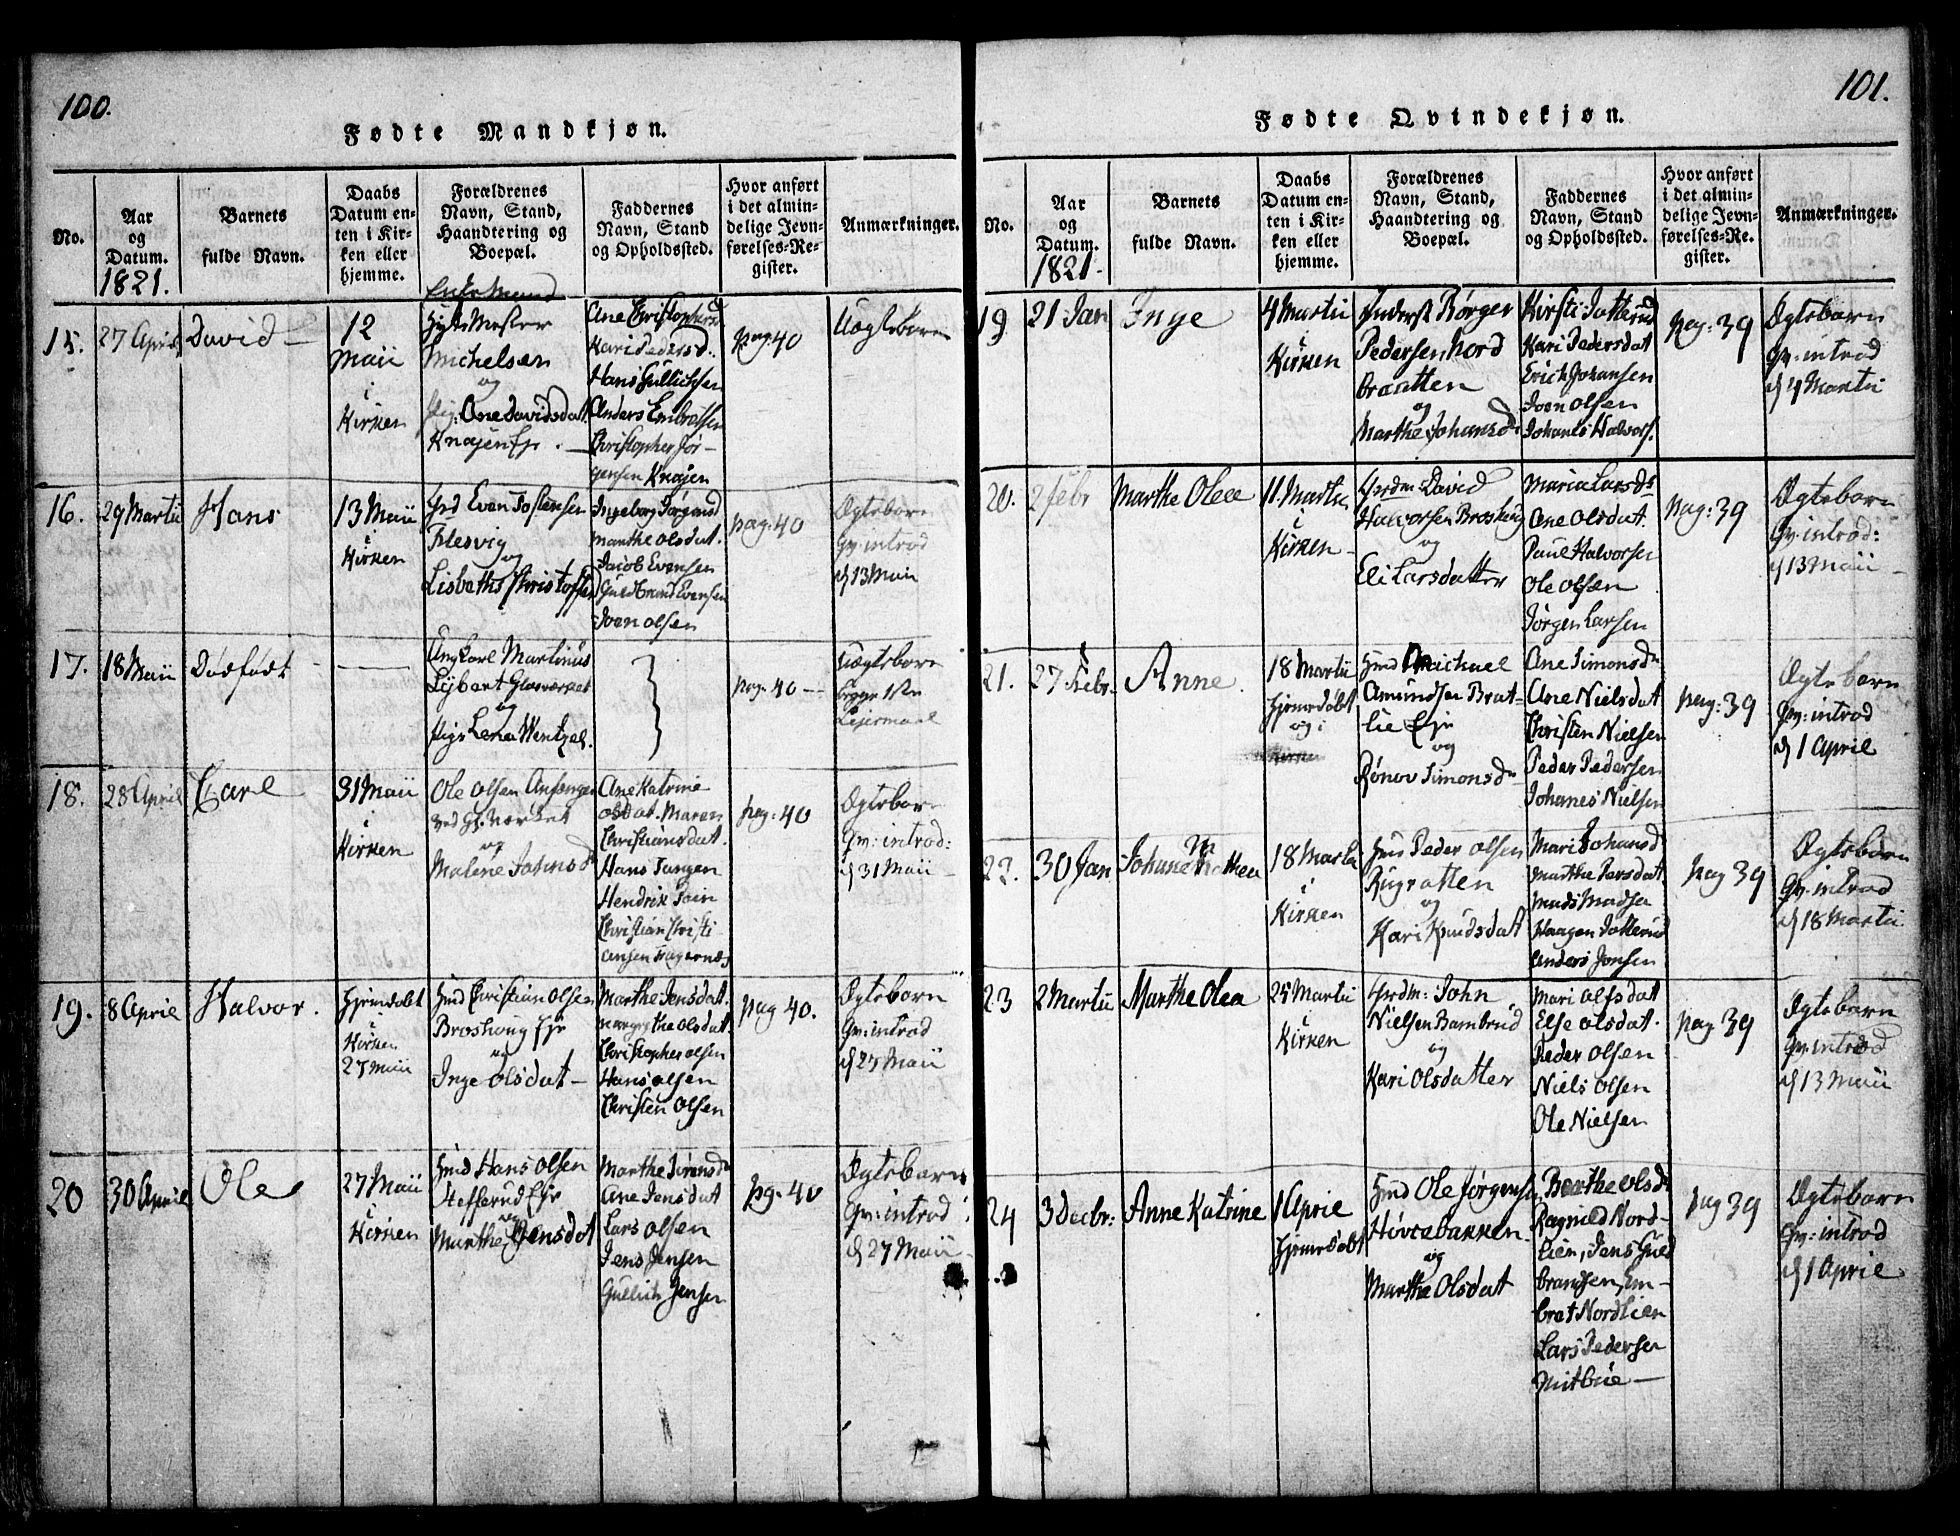 100.
Fødte Mandkjøn.
No.
Aar
og
Datum.
1821.
Barnets
fulde Navn.
Daabs
Datum en-
ten i Kir-
ken eller
hjemme.
Forældrenes
Navn, Stand,
Haandtering og
Boepæl.
Faddernes
Navn, Stand
og Opholdssted.
Hvor anført
i det almin-
delige Jevn-
førelses-Re-
gister.
Anmærkninger.
15.
27 April
David
12
Maii
i
Kirken
Enke Mand
Michelsen
og
Pig: Ane Davidsdat
Knajen Ejr.
Ane Christophersd
Kari Pedersd.
Hans Gullichsen
Anders Embretsen
Christopher Jør-
gensen Knajen
pag. 40
Uægteborn
16.
29 Martii
Hans
13 Maii
i
Kirken
Even Tostensen
Flesvig
og
Lisbeth Christoffersd
Ingeborg Jørgensd
Marthe Olsdat.
Jacob Evensen
Guldbrand Evensen
Joen Olsen
pag: 40
Ægteborn
Qv: introd
d 13 Maii
17.
18 Maii
Dødfødt
Ung Karl Martinus
Lybert Glasværket
og
Pige Lena Wentzel.
pag. 40
Uægteborn
Begge 1ste
Lejermaal
18.
28 April
Carl
31 Maii
i
Kirken
Ole Olsen
ved Gl. Værket
og
Malene Johnsd
Ane Katrine
Olsdat. Maren
Christiansdat.
Hans Tangen
Hendrik
Christian Christi
ansen Fagernæs
pag: 40
Ægteborn
Qv: introd:
d 31 Maii
19.
8 April
Halvor.
Hjemdøbt
i
Kirken
27 Maii
Hmd Christian Olsen
Broshoug Ejr
og
Inge Olsdat
Marthe Jensdat.
Margrethe Olsdat
Christopher Olsen
Hans Olsen
Christen Olsen
pag 40.
Ægteborn
Qv: introd
d 27 Maii
20
30 April
Ole
27 Maii
i
Kirken
Hmd Hans Olsen
Hesserud Ejr
og
Marthe Jensdat
Marthe Sørensd
Ane Jensdat
Lars Olsen
Jens Jensen
Gullich Jensen
pag. 40
Ægteborn
Qv: introd
d 27 Maii
101.
Fødte Qvindekjøn.
No.
Aar
og
Datum.
1821
Barnets
fulde Navn.
Daabs
Datum en-
ten i Kir-
ken eller
hjemme.
Forældrenes
Navn, Stand,
Haandtering og
Boepæl.
Faddernes
Navn, Stand
og Opholdssted.
Hvor anført
i det almin-
delige Jevn-
førelses-Re-
gister.
Anmærkninger.
19
21 Jan
Inge
4 Martii
i
Kirken
Pedersen Nord
Braatten
og
Marthe Johansd
Kirsti Jotterud
Kari Pedersdat
Erich Johansen
Joen Olsen
Johanes Halvors.
pag: 39
Ægteborn
Qv: introd
d 4 Martii
20.
2 Febr
Marthe Olea
11. Martii
i
Kirken
Grdm: David
Halvorsen Broshoug
og
Eli Larsdatter
Maria Larsd
Ane Olsdat.
Paul Halvorsen
Ole Olsen
Jørgen Larsen
pag: 39
Ægteborn
Qv: introd:
d 13 Maii
21.
27 Febr.
Anne.
18 Martii
Hjemdøbt
og i
Kirken
Hmd Michael
Amundsen Brat-
lie Ejr
og
Rønov Simonsd
Ane Simonsd
Ane Nielsdat
Christen Nielsen
Peder Pedersen
Johanes Nielsen
pag: 39
Ægteborn
Qv: introd
d 1 April
22.
30 Jan
18 Martii
i
Kirken
Hmd Peder Olsen
Rugratten
og
Kari Knudsdat
Mari Johansd
Marthe Larsdat.
Mads Madsen
Haagen Jotterud
Anders Jonsen
pag 39
Ægteborn
Qv: introd
d 18 Martii
23
2 Martii
Marthe Olea
25 Martii
i
Kirken
Grdm: John
Nielsen Bambrud
og
Kari Olsdatter
Mari Olsdat
Else Olsdat.
Peder Olsen
Niels Olsen
Ole Nielsen
pag 39
Ægteborn
Qv: introd
d 13 Maii
24
3 Decbr:
Anne Katrine
1 April
Hjemdøbt
Hmd Ole Jørgensen
Hovlebakken
og
Marthe Olsdat
Berthe Olsd
Ragnild Nord-
lien, Jens Guld
brandsen, Em-
bret Nordlien
Lars Pedersen
Mitbüe
pag 39
Ægteborn
Qv: introd
d 1 April